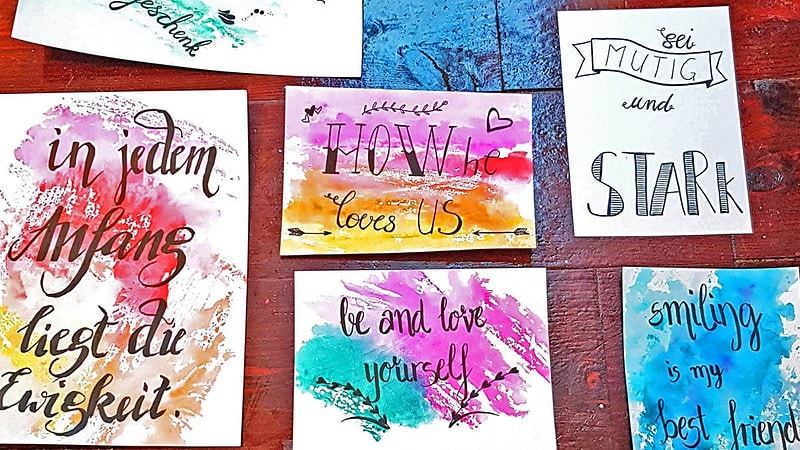 geschenk
in jedem
Anfang
liegt die
Ewigkeit.
HOW he
loves US
sei
MUTIG
und
STARK
be and love
yourself
smiling
is my
best friend